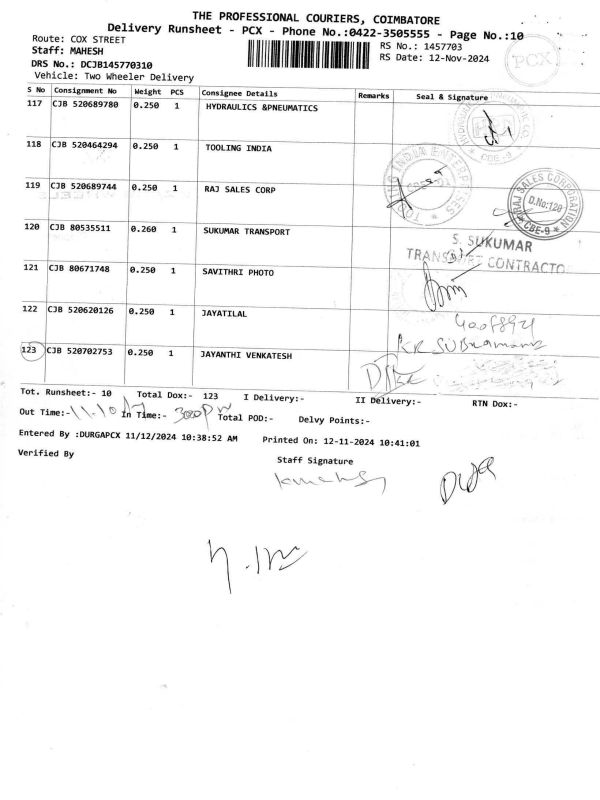 THE PROFESSIONAL COURIERS, COIMBATORE
Delivery Runsheet - PCX - Phone No.:0422-3505555 - Page No.:10
Route: COX STREET
RS No.: 1457703
Staff: MAHESH
RS Date: 12-Nov-2024
PCX
DRS No.: DCJB145770310
Vehicle: Two Wheeler Delivery
S No Consignment No Weight PCS Consignee Details Remarks Seal & Signature
117 CJB 520689780 0.250 1 HYDRAULICS &PNEUMATICS
CBE-9
118 CJB 520464294 0.250 1 TOOLING INDIA
119 CJB 520689744 0.250 1 RAJ SALES CORP
RAJ SALES CORPORATION
D.No:120
* CBE-9 *
120 CJB 80535511 0.260 1 SUKUMAR TRANSPORT
S. SUKUMAR
TRANSPORT CONTRACTO
121 CJB 80671748 0.250 1 SAVITHRI PHOTO
122 CJB 520620126 0.250 1 JAYATILAL
123 CJB 520702753 0.250 1 JAYANTHI VENKATESH
Tot. Runsheet:- 10 Total Dox:- 123 I Delivery:- II Delivery:- RTN Dox:-
Out Time:- 11.10 In Time:- Total POD:- Delvy Points:-
Entered By :DURGAPCX 11/12/2024 10:38:52 AM Printed On: 12-11-2024 10:41:01
Verified By Staff Signature